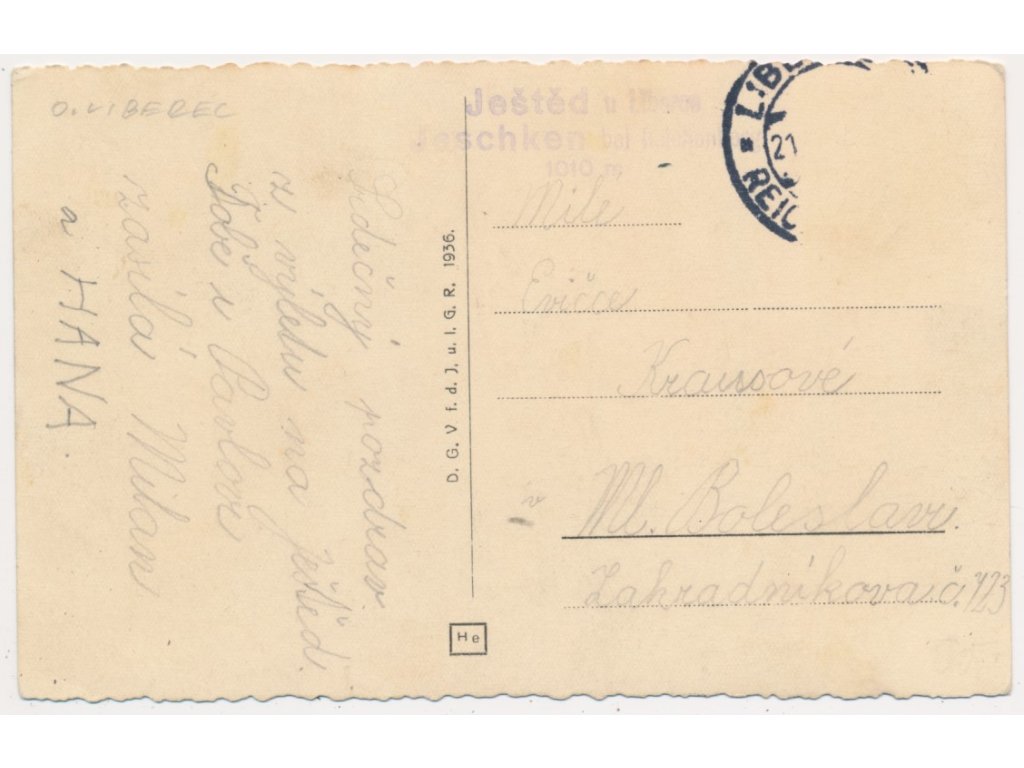 O. LIBEREC
Ještěd u Liberce
Jeschken bei Reichenberg
1010 m
LIBE
21
REIC
Srdečný pozdrav
z výletu na ještěd.
Tobě i Pavlovi
zasílá Milan
a HANA.
D. G. V f. d. J. u. I. G. R. 1936.
He
Milé
Evičce
Krausové
v Ml. Boleslavi.
Zahradníkova č. 723